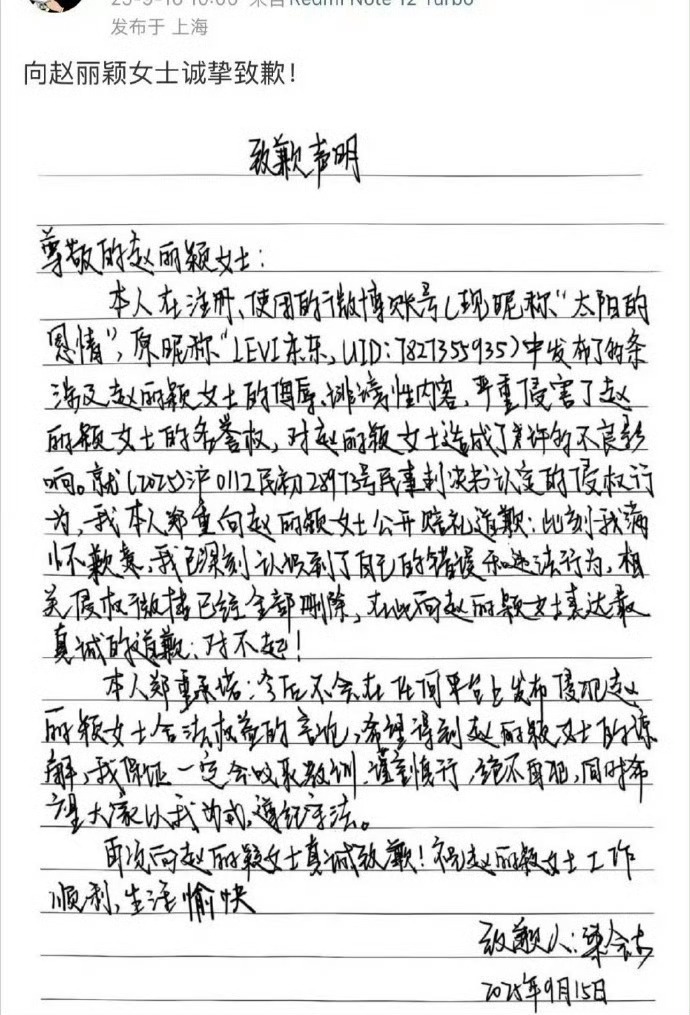 25-9-16 10:00 来自Redmi Note 12 Turbo
发布于 上海
向赵丽颖女士诚挚致歉!
致歉声明
尊敬的赵丽颖女士:
本人在注册、使用的微博账号(现昵称"太阳的
恩情",原昵称"LEVI京东,UID:7827355935)中发布了的条
涉及赵丽颖女士的侮辱、诽谤性内容,严重侵害了赵
丽颖女士的名誉权,对赵丽颖女士造成了的不良影
响。就(2025)沪0112民初28973号民事判决书认定的侵权行
为,我本人郑重向赵丽颖女士公开赔礼道歉:此刻我满
怀歉意,我已深刻认识到了自己的错误和违法行为,相
关侵权微博已经全部删除,在此向赵丽颖女士表达最
真诚的道歉:对不起!
本人郑重承诺:今后不会在任何平台上发布侵犯赵
丽颖女士合法权益的言论,希望得到赵丽颖女士的谅
解,我保证一定会吸取教训、谨言慎行,绝不再犯,同时希
望大家以我为戒,遵纪守法。
再次向赵丽颖女士真诚致歉!祝赵丽颖女士工作
顺利,生活愉快
致歉人:
2025年9月15日